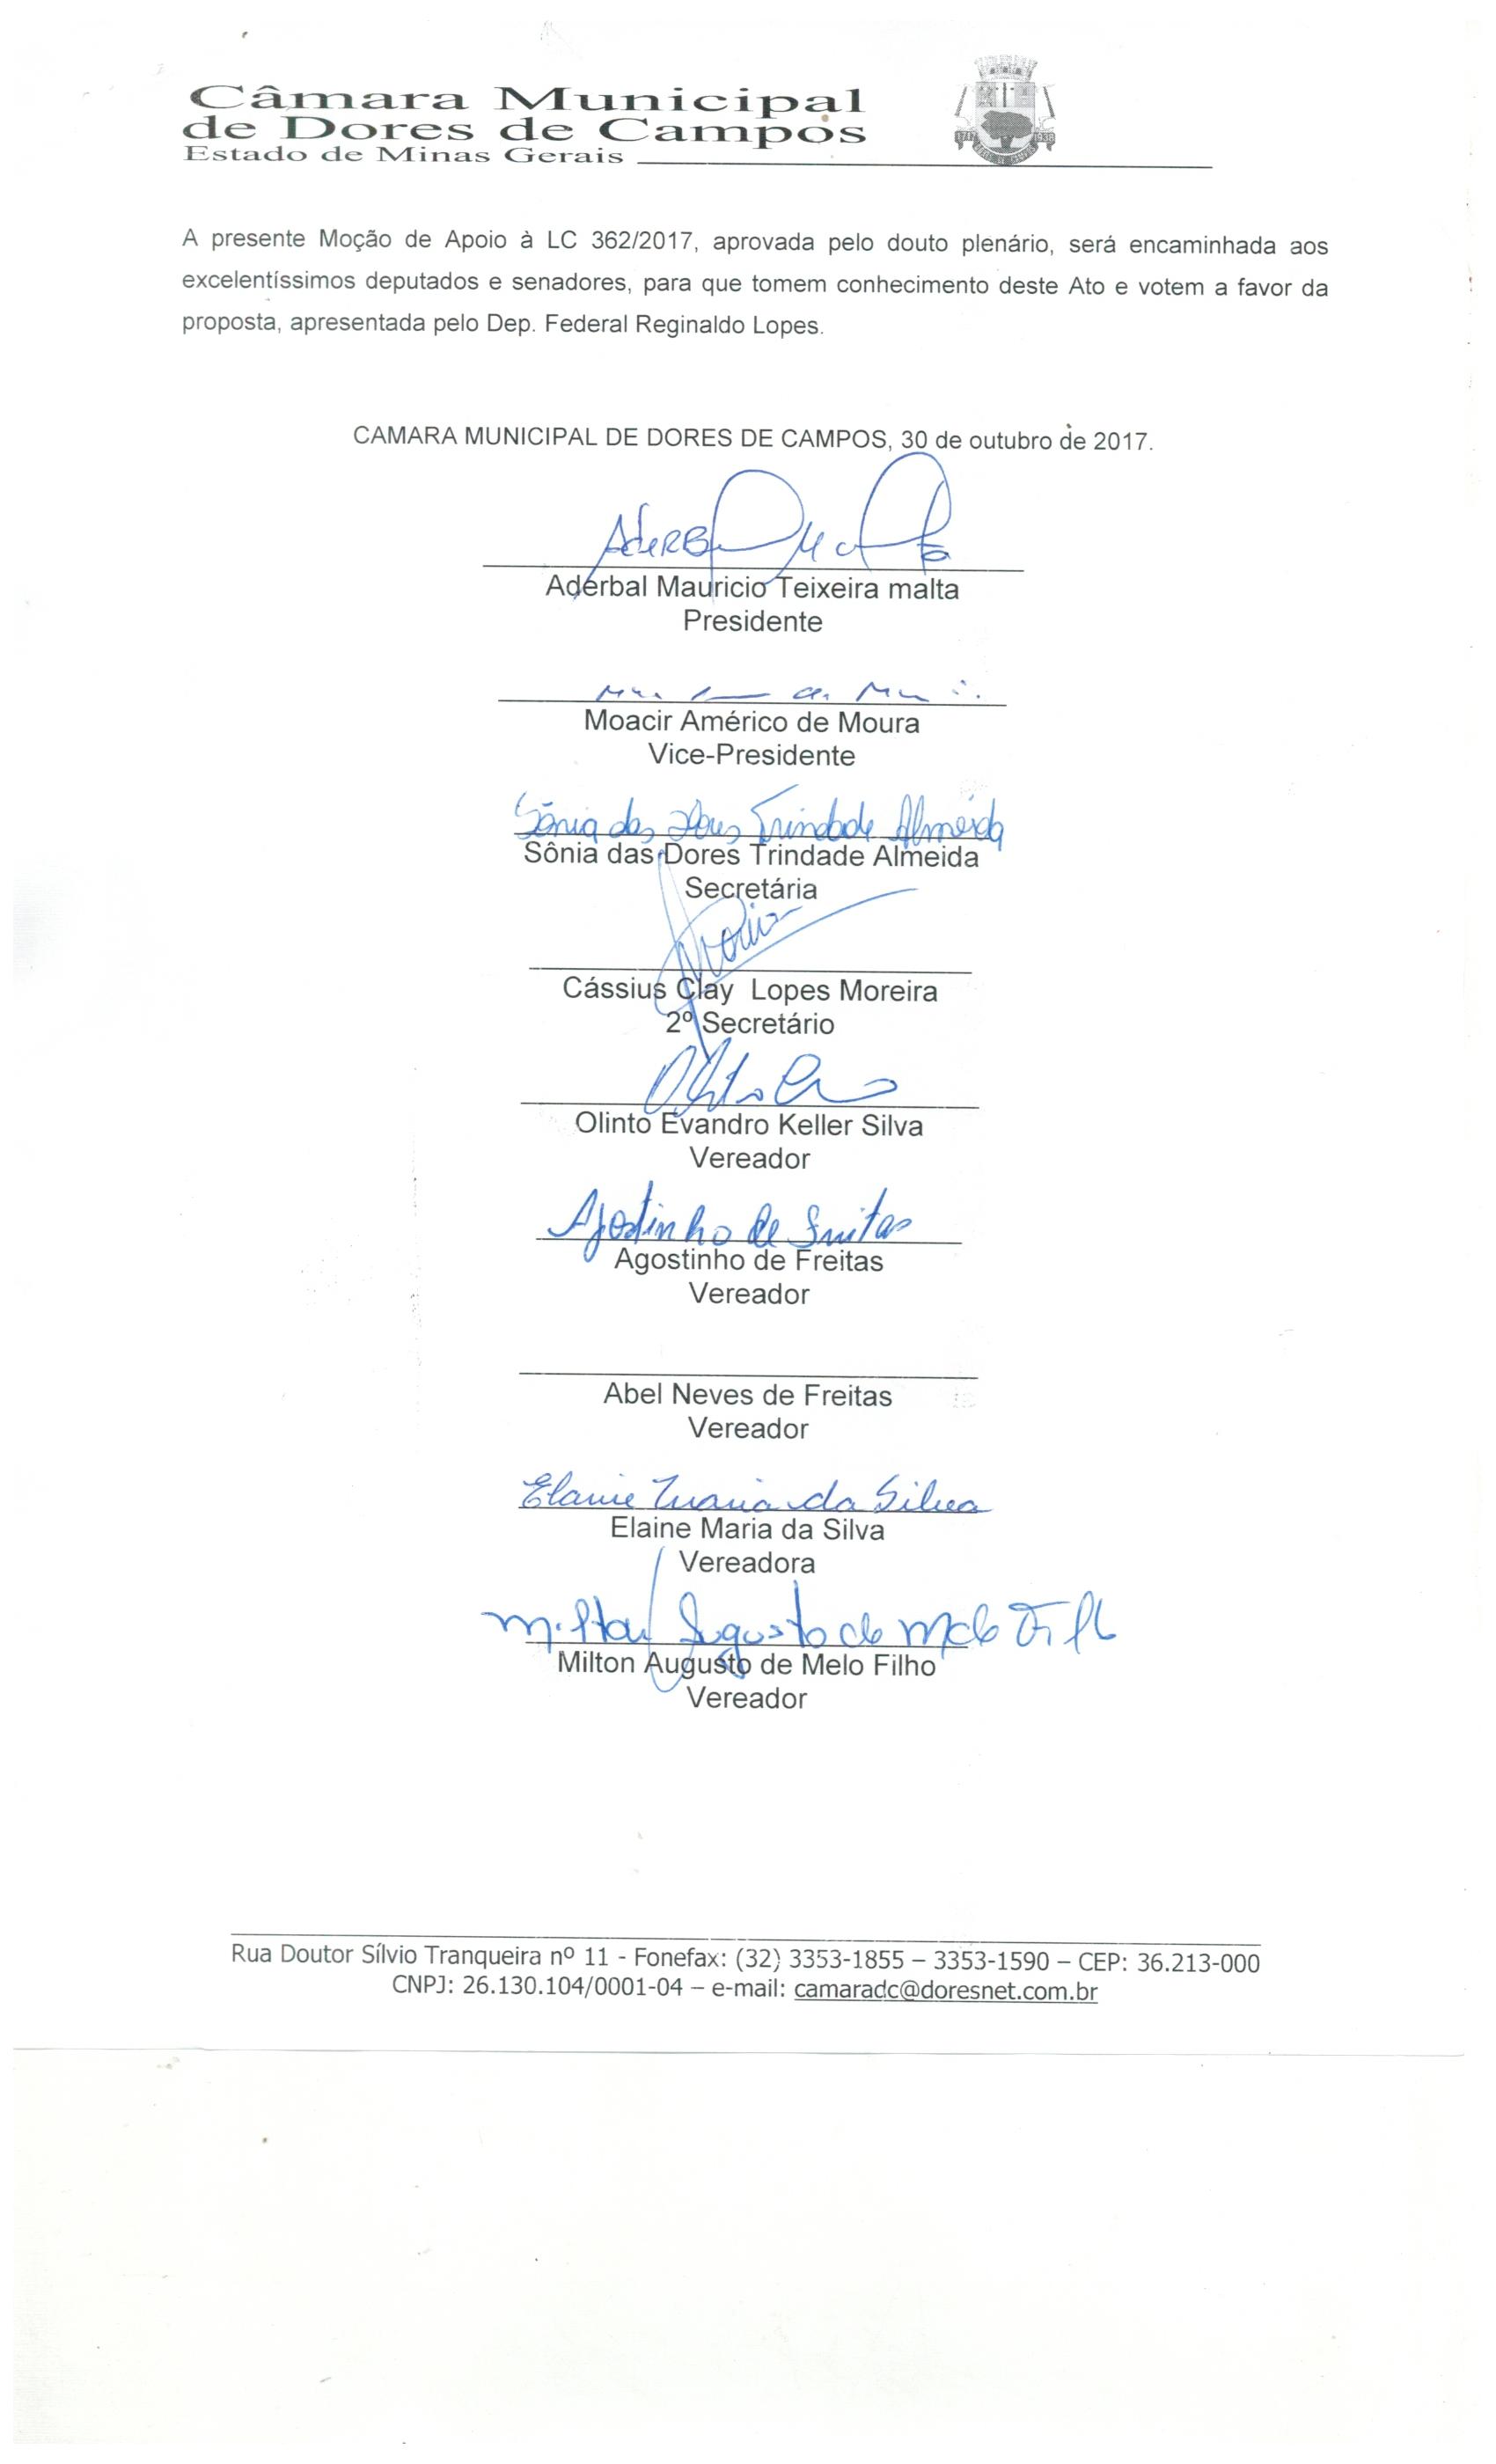 Câmara Municipal
de Dores de Campos
Estado de Minas Gerais
1717 1938
A presente Moção de Apoio à LC 362/2017, aprovada pelo douto plenário, será encaminhada aos
excelentíssimos deputados e senadores, para que tomem conhecimento deste Ato e votem a favor da
proposta, apresentada pelo Dep. Federal Reginaldo Lopes.
CAMARA MUNICIPAL DE DORES DE CAMPOS, 30 de outubro de 2017.
Aderbal Mauricio Teixeira malta
Presidente
Moacir Américo de Moura
Vice-Presidente
Sônia das Dores Trindade Almeida
Sônia das Dores Trindade Almeida
Secretária
Cássius Clay Lopes Moreira
2º Secretário
Olinto Evandro Keller Silva
Vereador
Agostinho de Freitas
Agostinho de Freitas
Vereador
Abel Neves de Freitas
Vereador
Elaine Maria da Silva
Elaine Maria da Silva
Vereadora
Milton Augusto de Melo Filho
Milton Augusto de Melo Filho
Vereador
Rua Doutor Sílvio Tranqueira nº 11 - Fonefax: (32) 3353-1855 – 3353-1590 – CEP: 36.213-000
CNPJ: 26.130.104/0001-04 – e-mail: camaradc@doresnet.com.br